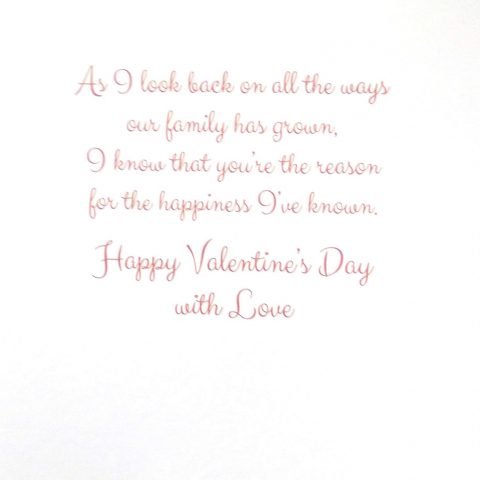 As I look back on all the ways
our family has grown,
I know that you're the reason
for the happiness I've known.
Happy Valentine's Day
with Love